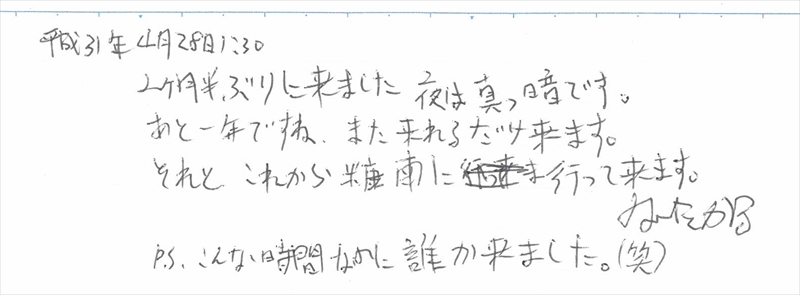 平成31年4月28日1:30
2ヶ月半ぶりに来ました 夜は真っ暗です。
あと一年ですね、また来れるだけ来ます。
それと これから糠南に 行って来ます。
P.S. こんな時間なかに誰か来ました。(笑)